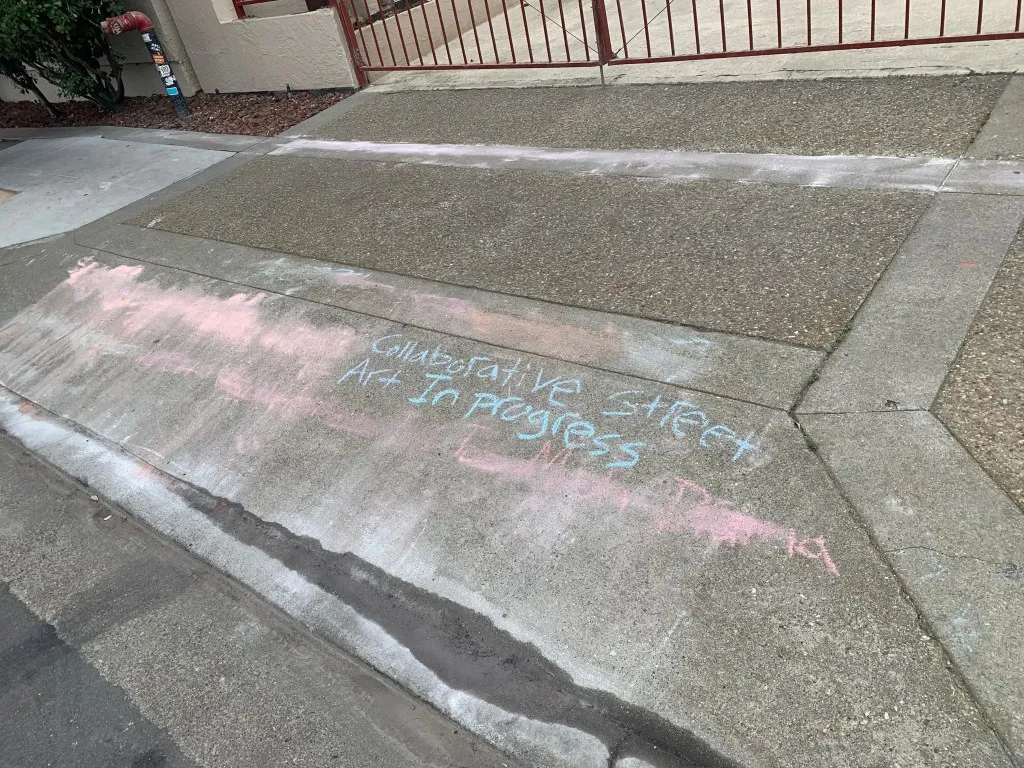 Collaborative Street
Art In progress